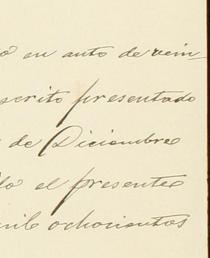 ó en auto de vein-
scrito presentado
de Diciembre
el presente
mil ochocientos